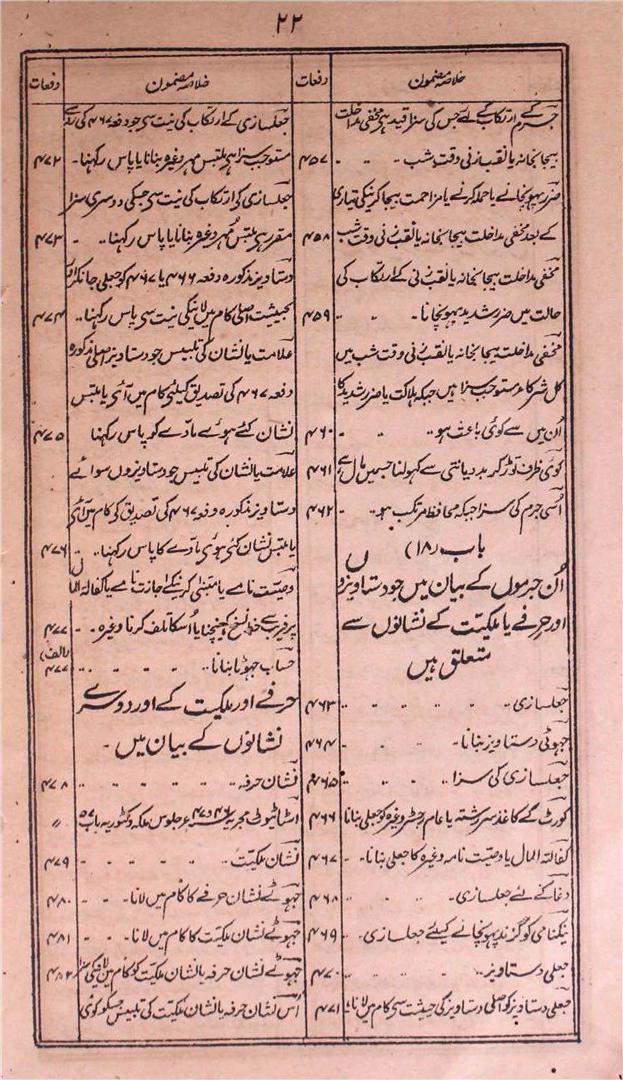 ۲۲
خلاصہ مضمون
دفعات
خلاصہ مضمون
دفعات
جرم کے ارتکاب کے لئے جس کی سزا قید ہی مخفی مداخلت
بیجا بخانہ یا نقب زنی وقت شب ۴۵۷
ضرر پہونچانے یا حملہ کرنے یا مزاحمت بیجا کرنیکی تیاری
کے بعد مخفی مداخلت بیجا بخانہ یا نقب زنی وقت شب ۴۵۸
مخفی مداخلت بیجا بخانہ یا نقب زنی کے ارتکاب کی
حالت میں ضرر شدید پہونچانا ۴۵۹
مخفی مداخلت بیجا بخانہ یا نقب زنی وقت شب میں
کل شرکاء مستوجب سزا ہیں جبکہ ہلاکت یا ضرر شدید کا
اُن میں سے کوئی باعث ہو ۴۶۰
کوئی ظرف توڑ کر بددیانتی سے کھولنا جسمیں مال ہے ۴۶۱
اُسی جرم کی سزا جبکہ محافظ مرتکب ہو ۴۶۲
باب (۱۸)
اُن جرموں کے بیان میں جو دستاویزوں
اور حرفے یا ملکیت کے نشانوں سے
متعلق ہیں
جعلسازی ۴۶۳
جھوٹی دستاویز بنانا ۴۶۴
جعلسازی کی سزا ۴۶۵
کورٹ کے کاغذ سررشتہ یا عام رجسٹر وغیرہ کو جعلی بنانا ۴۶۶
کفالۃ المال یا وصیت نامہ وغیرہ کا جعلی بنانا ۴۶۷
دغا کے لئے جعلسازی ۴۶۸
نیکنامی کو گزند پہونچانے کیلئے جعلسازی ۴۶۹
جعلی دستاویز ۴۷۰
جعلی دستاویز کو اصلی دستاویز کی حیثیت سی کام میں لانا ۴۷۱
جعلسازی کے ارتکاب کی نیت سی جو دفعہ ۴۶۷ کی رو سے
مستوجب سزا ہی ملتبس مہر وغیرہ بنانا یا پاس رکھنا ۴۷۲
جعلسازی کو ارتکاب کی نیت سی جسکی دوسری سزا
مقرر ہی ملتبس مُہر وغیرہ بنانا یا پاس رکھنا ۴۷۳
دستاویز مذکورہ دفعہ ۴۶۶ یا ۴۶۷ کو جعلی جانکر اور
بحیثیت اصلی کام میں لانیکی نیت سی پاس رکھنا ۴۷۴
علامت یا نشان کی تلبیس جو دستاویز اصلی مذکورہ
دفعہ ۴۶۷ کی تصدیق کیلئے کام میں آئی یا ملتبس
نشان کئے ہوئے مادے کو پاس رکھنا ۴۷۵
علامت یا نشان کی تلبیس جو دستاویزوں سوائے
دستاویز مذکورہ دفعہ ۴۶۷ کی تصدیق کو کام میں آئی
یا ملتبس نشان کئی ہوئی مادے کا پاس رکھنا ۴۷۶
وصیت نامے یا متبنیٰ کرنیکے اجازت نامے یا کفالۃ المال
پر فریب سے خط نسخ کھینچنا یا اُسکا تلف کرنا وغیرہ ۴۷۷
حساب جھوٹا بنانا (الف) ۴۷۷
حرفے اور ملکیت کے اور دوسرے
نشانوں کے بیان میں
نشان حرفہ ۴۷۸
اسٹاٹیوٹ مجریہ جلوس ملکہ وکٹوریہ باب ۵۷ 〃
نشان ملکیت ۴۷۹
جھوٹے نشان حرفے کا کام میں لانا ۴۸۰
جھوٹے نشان ملکیت کا کام میں لانا ۴۸۱
جھوٹے نشان حرفہ یا نشان ملکیت کو کام میں لانیکی سزا ۴۸۲
اُس نشان حرفہ یا نشان ملکیت کی تلبیس جسکو کوئی